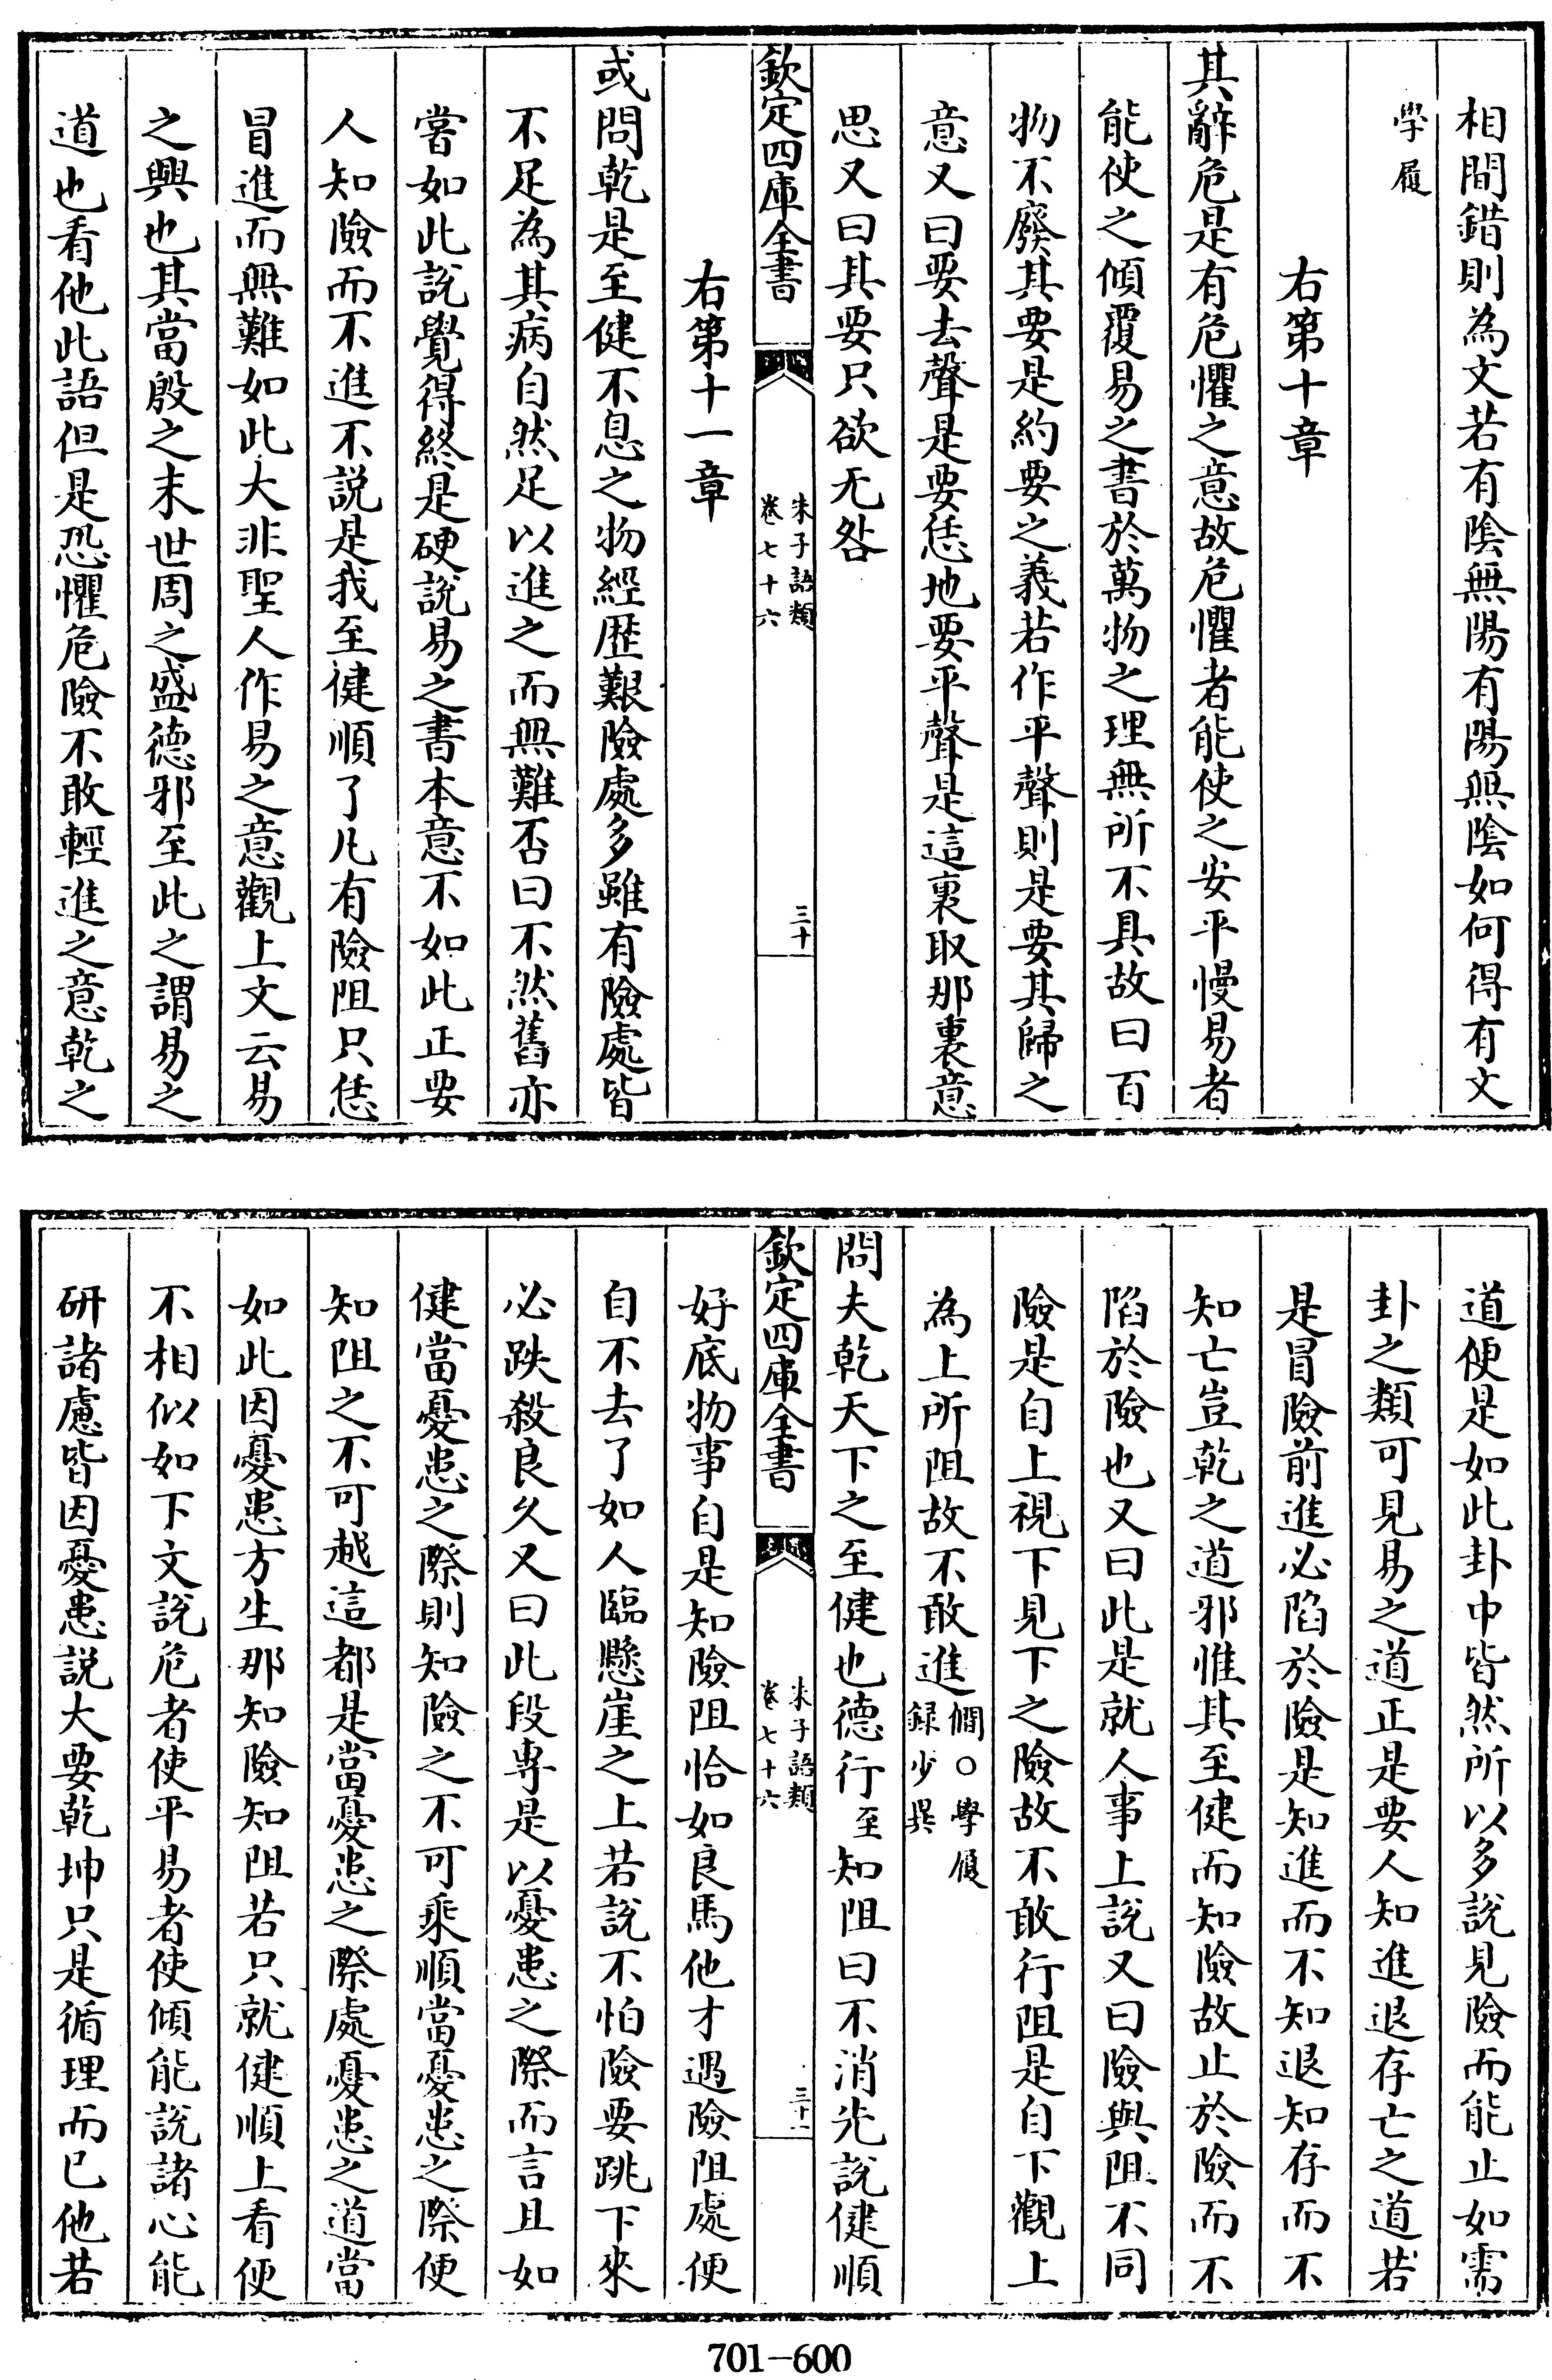 相間錯則為文若有陰無陽有陽無陰如何得有文
學履
右第十章
其辭危是有危懼之意故危懼者能使之安平慢易者
能使之傾覆易之書於萬物之理無所不具故曰百
物不廢其要是約要之義若作平聲則是要其歸之
意又曰要去聲是要恁地要平聲是這裏取那裏意
思又曰其要只欲无咎
欽定四庫全書
朱子語類
卷七十六
三十
右第十一章
或問乾是至健不息之物經歴艱險處多雖有險處皆
不足為其病自然足以進之而無難否曰不然舊亦
嘗如此說覺得終是硬說易之書本意不如此正要
人知險而不進不説是我至健順了凡有險阻只恁
冒進而無難如此大非聖人作易之意觀上文云易
之興也其當殷之末世周之盛德邪至此之謂易之
道也看他此語但是恐懼危險不敢輕進之意乾之
道便是如此卦中皆然所以多說見險而能止如需
卦之類可見易之道正是要人知進退存亡之道若
是冒險前進必陷於險是知進而不知退知存而不
知亡豈乾之道邪惟其至健而知險故止於險而不
陷於險也又曰此是就人事上說又曰險與阻不同
險是自上視下見下之險故不敢行阻是自下觀上
為上所阻故不敢進僩○學履
録少異
問夫乾天下之至健也德行至知阻曰不消先說健順
欽定四庫全書
朱子語類
卷七十六
三十一
好底物事自是知險阻恰如良馬他才遇險阻處便
自不去了如人臨懸崖之上若說不怕險要跳下來
必跌殺良久又曰此段專是以憂患之際而言且如
健當憂患之際則知險之不可乘順當憂患之際便
知阻之不可越這都是當憂患之際處憂患之道當
如此因憂患方生那知險知阻若只就健順上看便
不相似如下文說危者使平易者使傾能說諸心能
研諸慮皆因憂患説大要乾坤只是循理而已他若
701-600